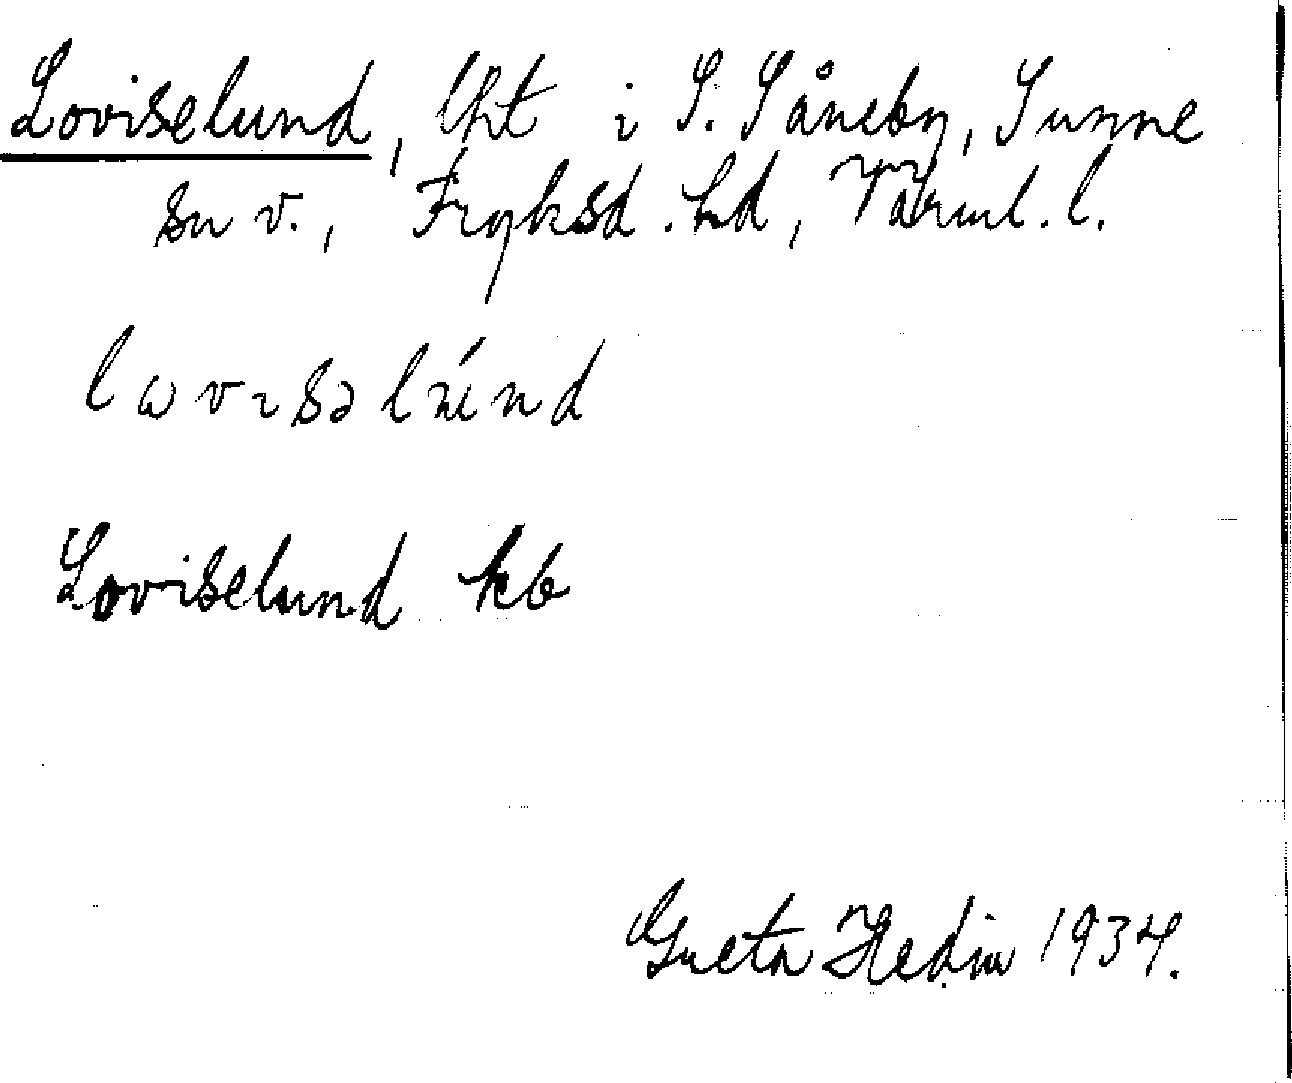 Loviselund, lht i S. Såneby, Sunne
sn v., Fryksd. hd, Värml. l.
lωvısəlúnd
Loviselund kb
Greta Hedin 1934.